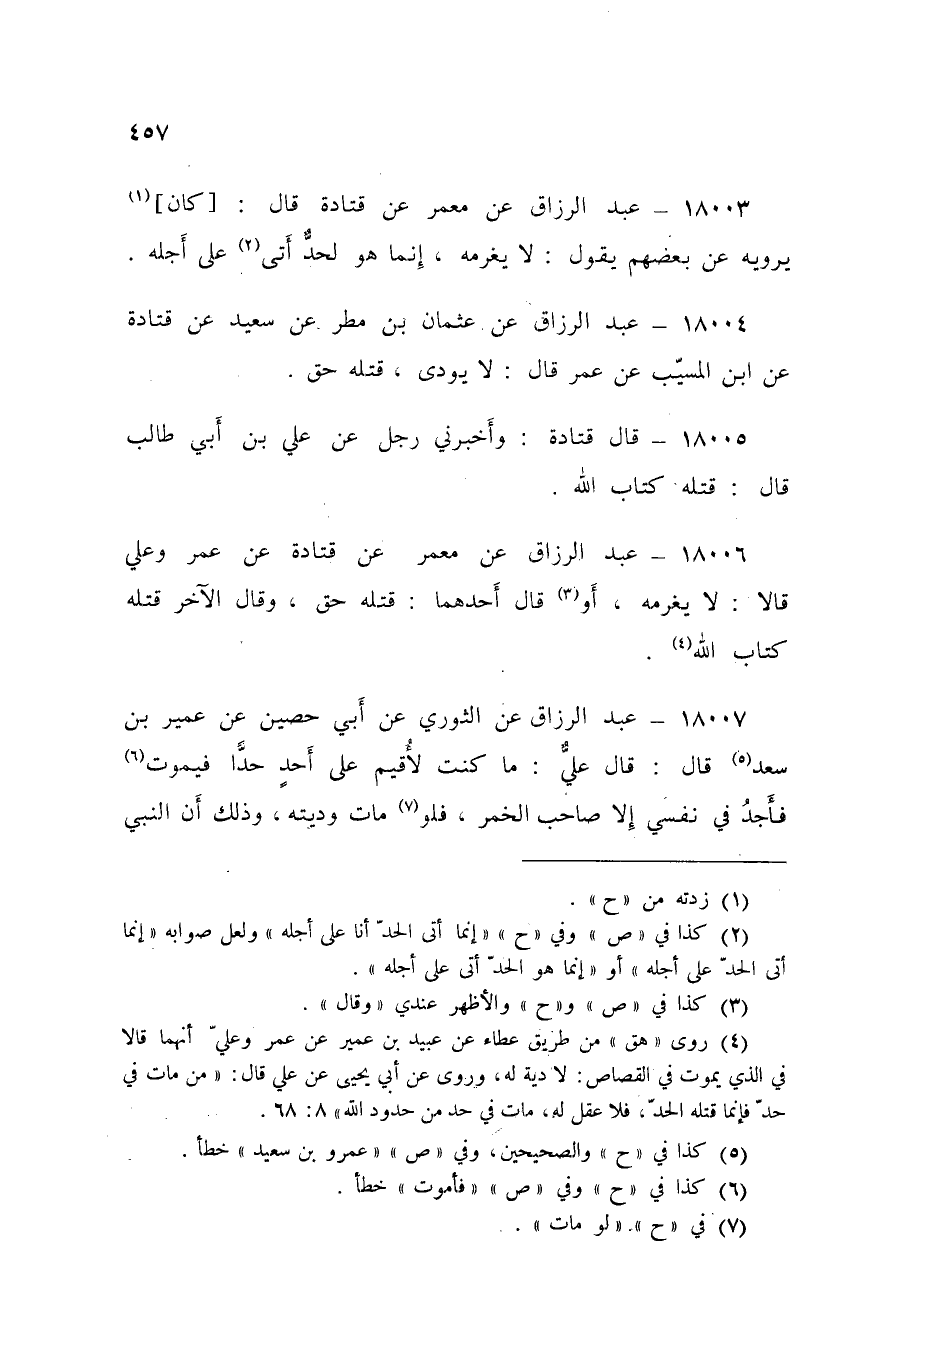 ٤٥٧
١٨٠٠٣ ــ عبد الرزاق عن معمر عن قتادة قال : [كان](١)
يرويه عن بعضهم يقول : لا يغرمه ، إنما هو لحدٌّ أَتى(٢) على أَجله .
١٨٠٠٤ ــ عبد الرزاق عن عثمان بن مطر عن سعيد عن قتادة
عن ابن المسيّب عن عمر قال : لا يودى ، قتله حق .
١٨٠٠٥ ــ قال قتادة : وأَخبرني رجل عن علي بن أَبي طالب
قال : قتله كتاب الله .
١٨٠٠٦ ــ عبد الرزاق عن معمر عن قتادة عن عمر وعلي
قالا : لا يغرمه ، أَو(٣) قال أَحدهما : قتله حق ، وقال الآخر قتله
كتاب الله(٤) .
١٨٠٠٧ ــ عبد الرزاق عن الثوري عن أَبي حصين عن عمير بن
سعد(٥) قال : قال عليٌّ : ما كنت لأُقيم على أَحدٍ حدًّا فيموت(٦)
فأَجدُ في نفسي إلا صاحب الخمر ، فلو(٧) مات وديته ، وذلك أَن النبي
(١) زدته من « ح » .
(٢) كذا في « ص » وفي « ح » « إنما أتى الحدّ أنا على أجله » ولعل صوابه « إنما
أتى الحدّ على أجله » أو « إنما هو الحدّ أتى على أجله » .
(٣) كذا في « ص » و« ح » والأظهر عندي « وقال » .
(٤) روى « هق » من طريق عطاء عن عبيد بن عمير عن عمر وعليّ أنهما قالا
في الذي يموت في القصاص: لا دية له، وروى عن أبي يحيى عن علي قال: « من مات في
حدّ فإنما قتله الحدّ، فلا عقل له، مات في حد من حدود الله» ٨: ٦٨ .
(٥) كذا في « ح » والصحيحين، وفي « ص » « عمرو بن سعيد » خطأ .
(٦) كذا في « ح » وفي « ص » « فأموت » خطأ .
(٧) في « ح ». « لو مات » .